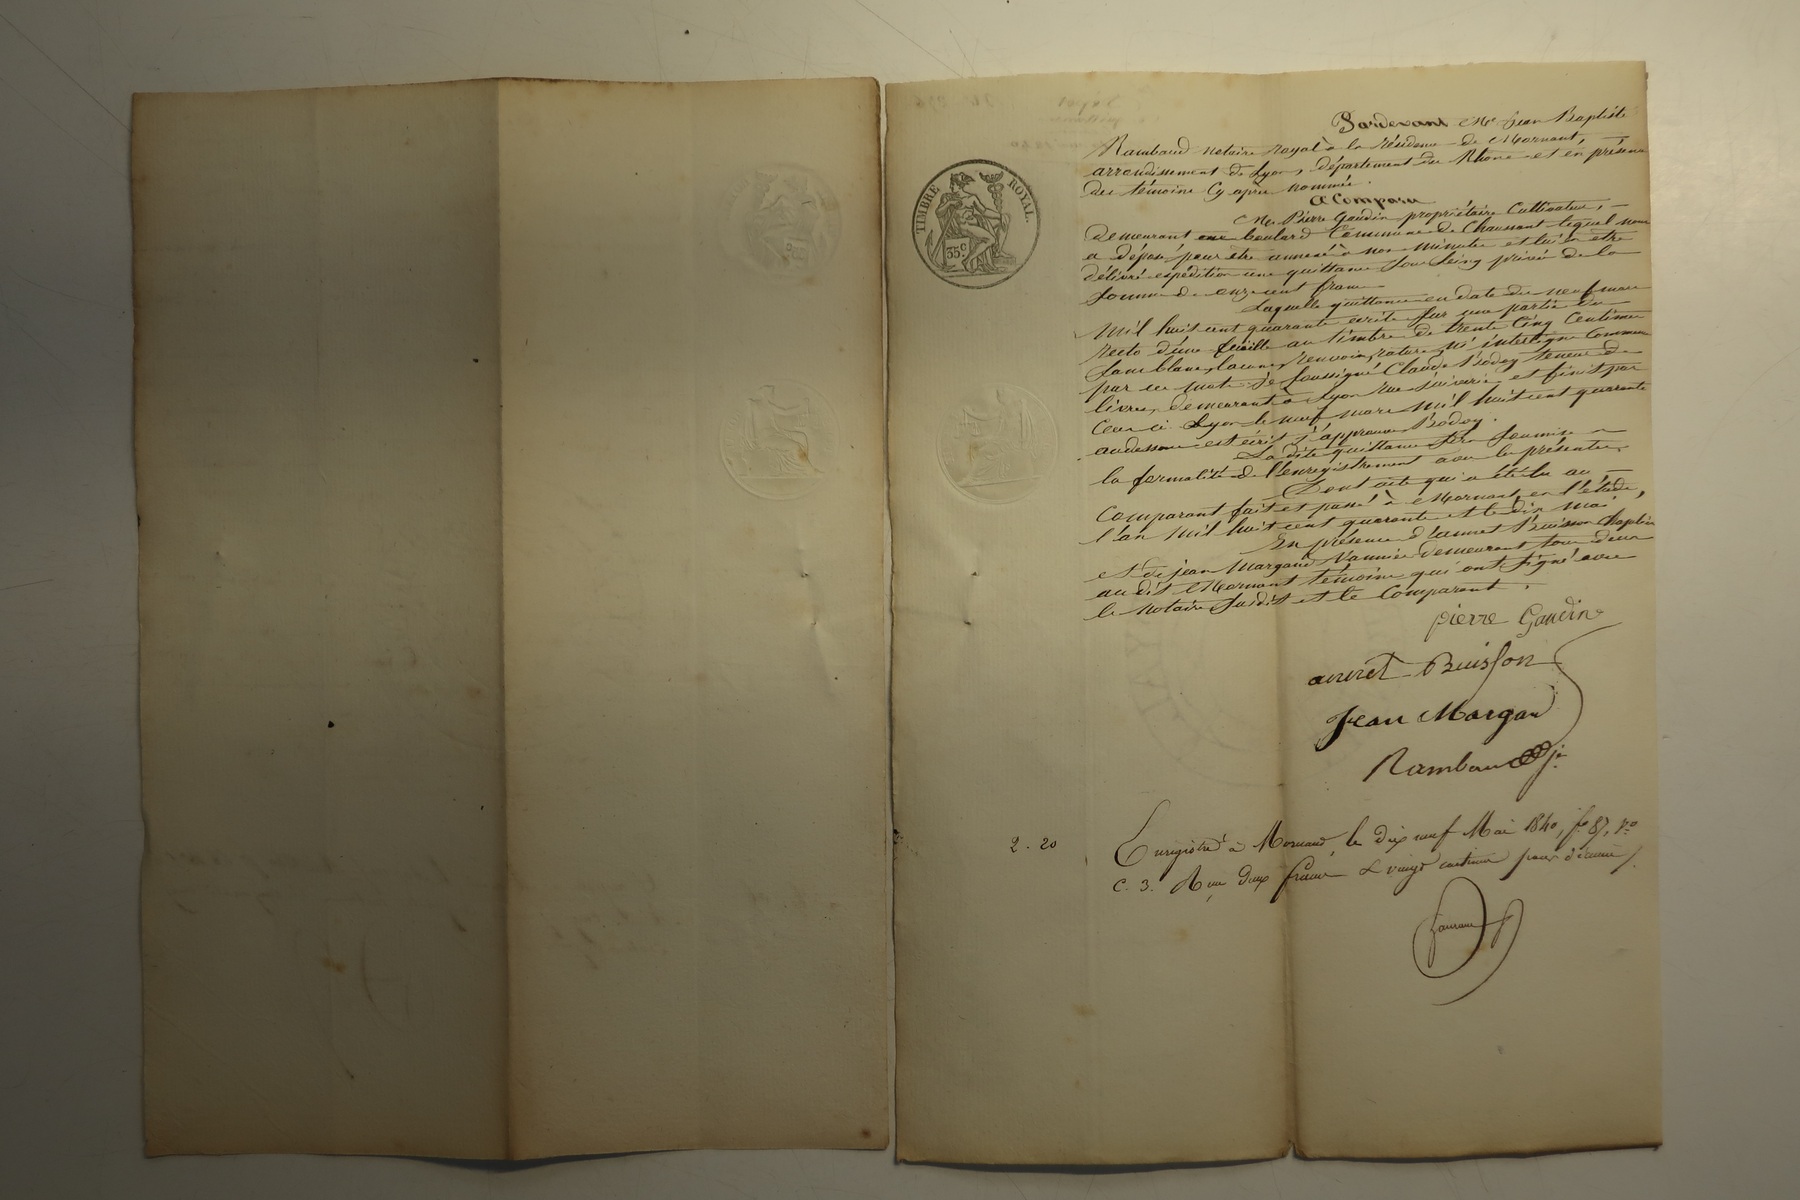 TIMBRE ROYAL.
35 c.
Pardevant Me Jean Baptiste
Rambaud notaire royal à la résidence de Mornant,
arrondissement de Lyon, département du Rhône et en présence
des témoins cy après nommés.
A Comparu
Me Pierre Gaudin propriétaire Cultivateur,
demeurant au boulard Commune de Chaussant lequel nous
a déposé pour être annexé à nos minutes et lui en être
délivré expédition une quittance sous seing privée de la
somme de onze cent francs
Laquelle quittance en date du neuf mars
mil huit cent quarante écrite sur une partie du
recto d'une feuille au timbre de trente Cinq Centimes
sans blanc, lacune, renvoi, rature, ni interligne Commence
par ces mots Je soussigné Claude Bodoy teneur de
livres, demeurant à Lyon rue et finit par
Ceux ci Lyon le neuf mars mil huit cent quarante
au dessous est écrit j'approuve Bodoy.
La dite quittance sera soumise à
la formalité de l'enregistrement avec les présentes.
Dont acte qui a été lu au
Comparant fait et passé à Mornant, en l'étude,
l'an mil huit cent quarante et le dix mai
En présence d'annet Buisson
et de jean Margand demeurant tous deux
au dit Mornant témoins qui ont signé avec
le notaire susdit et le Comparant.
pierre Gaudin
annet Buisson
Jean Margan
Rambaud jne
2 . 20
Enregistré à Mornant, le dix neuf Mai 1840, fo 87, ro
C. 3. Reçu deux francs & vingt centimes pour décime